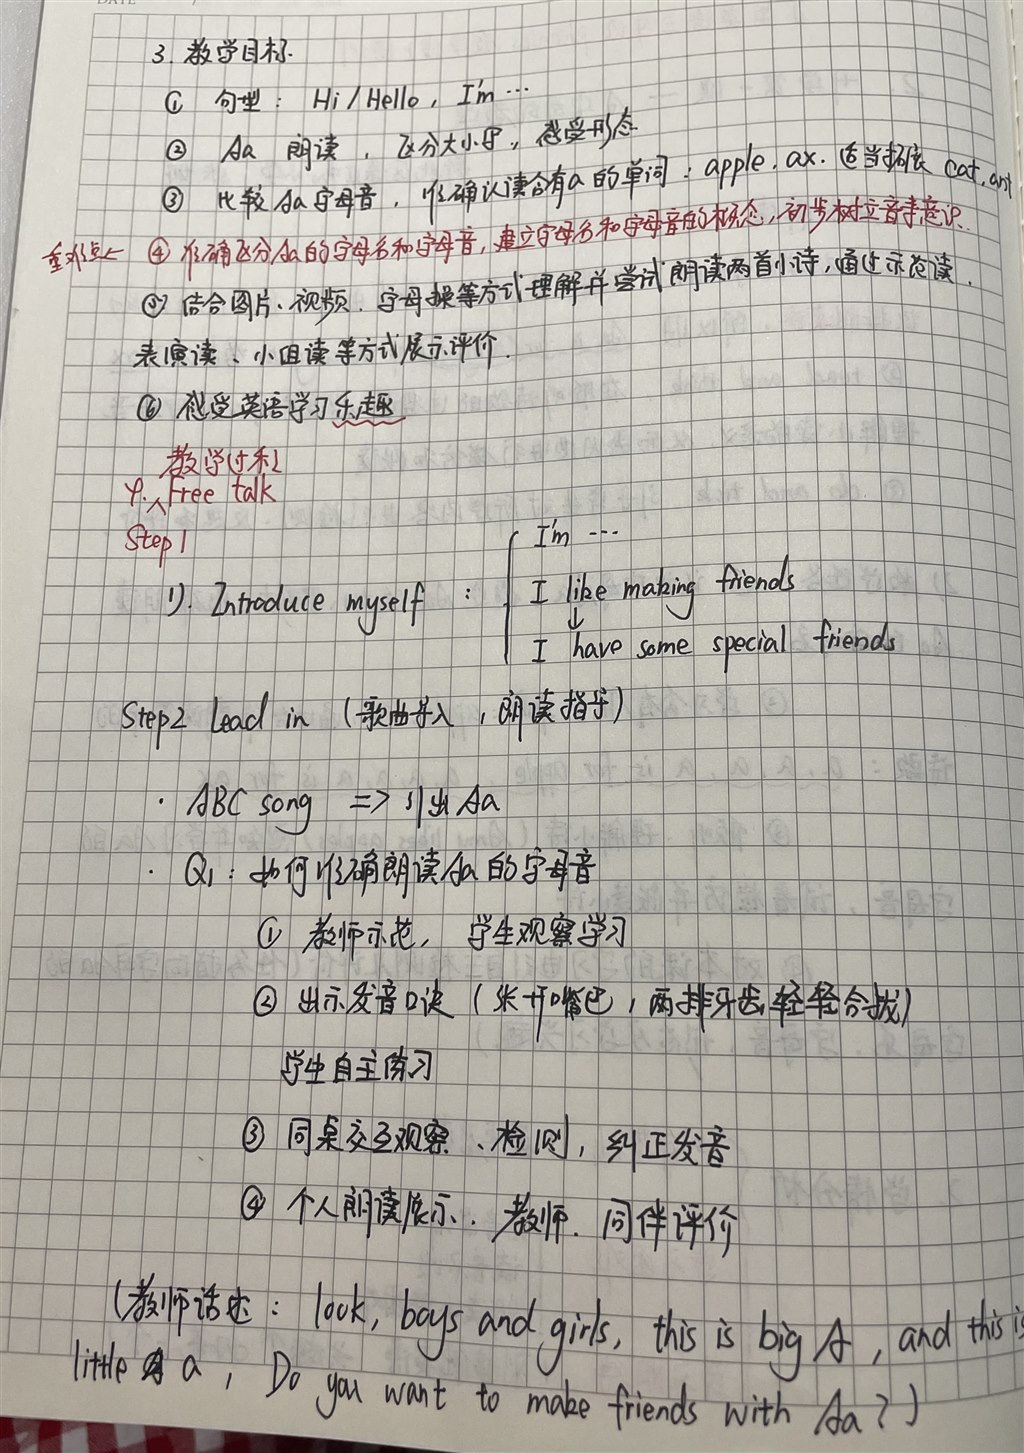 3. 教学目标.
① 句型： Hi / Hello, I'm ...
② Aa 朗读，区分大小写，感受形态
③ 比较Aa字母音，准确认读含有a的单词：apple. ax. 适当拓展 cat, ant
重难点← ④ 准确区分Aa的字母名和字母音，建立字母名和字母音的概念，初步树立音素意识.
⑤ 结合图片、视频、字母操等方式理解并尝试朗读两首小诗，通过示范读、
表演读、小组读等方式展示评价.
⑥ 感受英语学习乐趣
教学过程
4. Free talk
Step 1
1). Introduce myself :
I'm ...
I like making friends
↓
I have some special friends
Step2 Lead in （歌曲导入，朗读指导）
· ABC song => 引出 Aa
· Q1：如何准确朗读Aa的字母音
① 教师示范，学生观察学习
② 出示发音口诀（张开嘴巴，两排牙齿轻轻合拢）
学生自主练习
③ 同桌交互观察、检测，纠正发音
④ 个人朗读展示、教师、同伴评价
（教师话述：look, boys and girls, this is big A, and this is
little a, Do you want to make friends with Aa？）